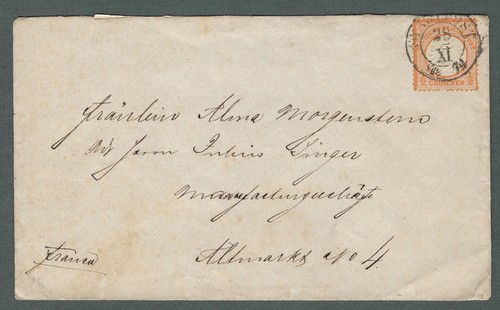 28
XI
74
GROSCHEN
Fräulein Alma Morgenstern
Adr Herrn Julius Singer
Manufacturgeschäft
franco
Altmarkt No 4.